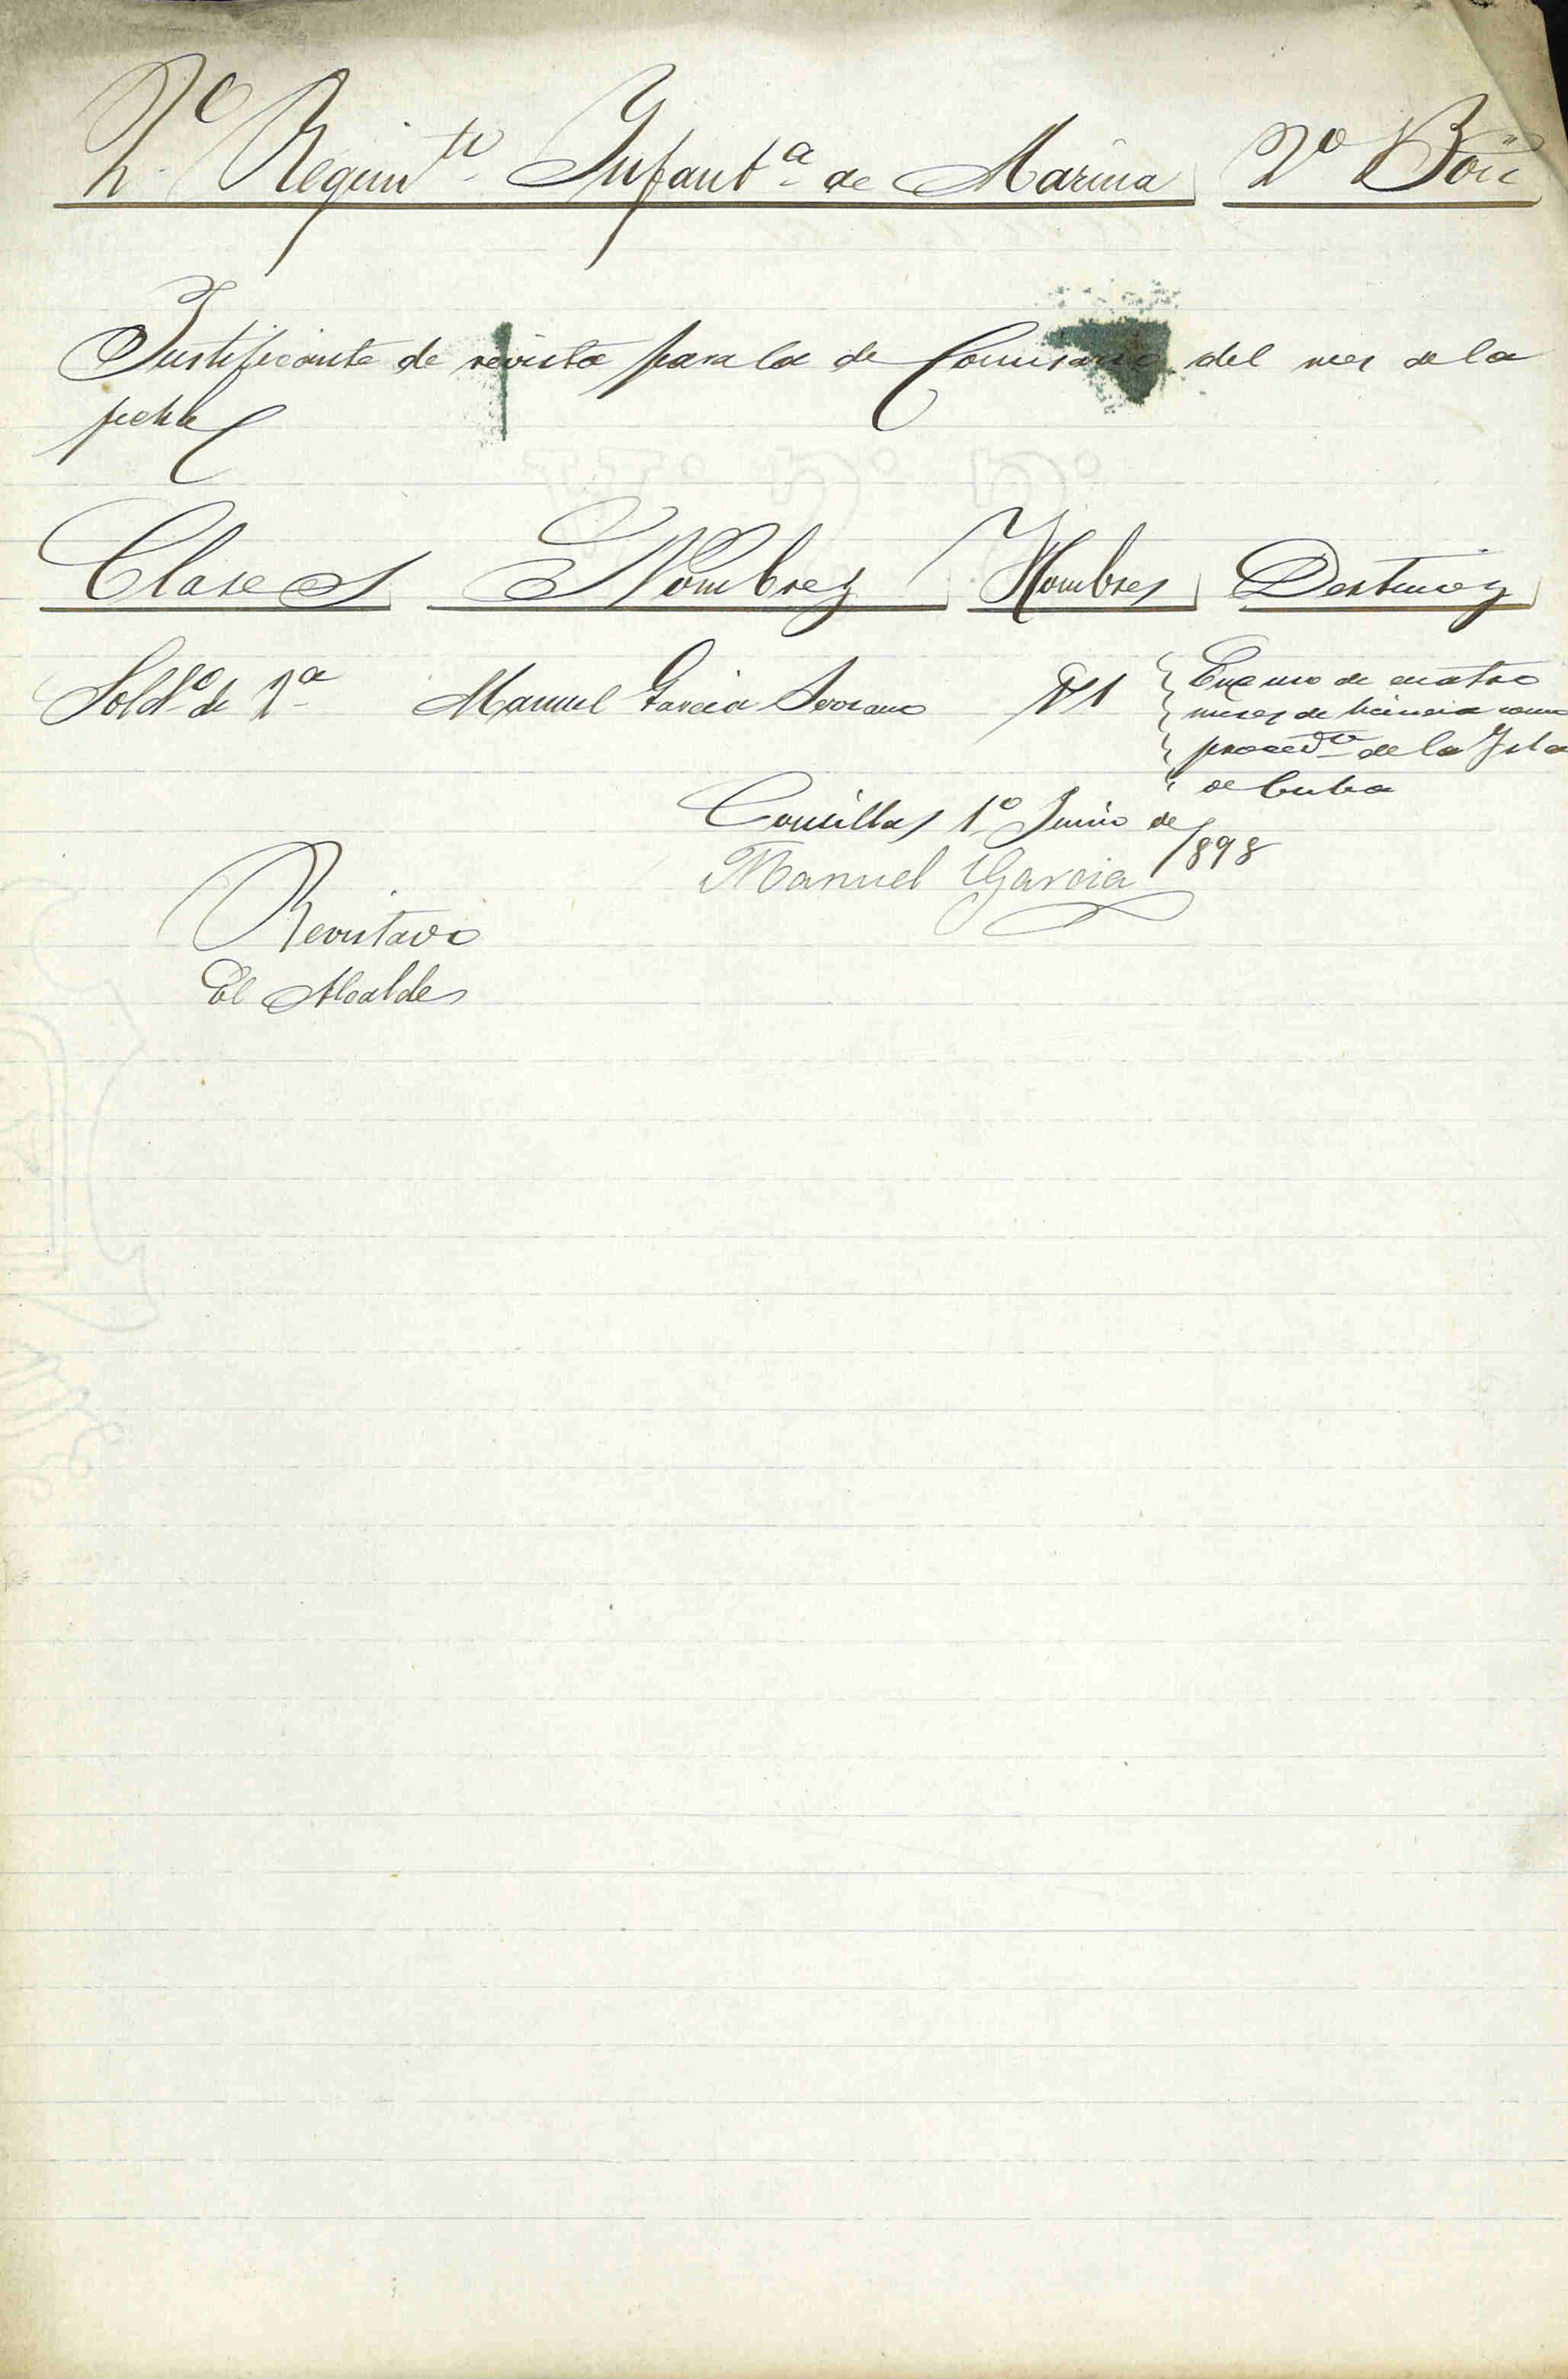 2º Regimto Infantª de Marina 2º Bon
Justificante de revista para la de Comisario del mes de la
fecha
Clases Nombres Hombres Destinos
Soldº de 2ª Manuel Garcia Serrano 1 En uso de cuatro
meses de licencia como
procedte de la Isla
de Cuba
Comillas 1º Junio de
1898
Manuel Garcia
Revistado
El Alcalde